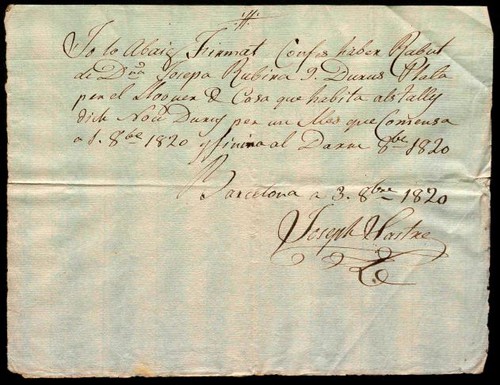 Jo lo Abaix Firmat Confes haber Rabut
de Dña Josepa Rubira 9. Durus Plata
per el Lloguer de Casa que habita als Tally
dich Nou Durus per un Mes que Comensa
a 1. 8bre 1820 y finira al Darrer 8bre 1820
Barcelona a 3. 8bre 1820
Joseph Sastre